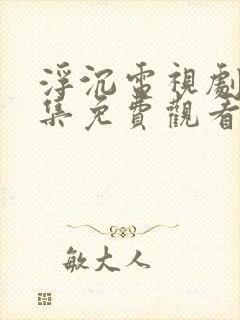 浮沉電視劇
集免費觀看
敏大人